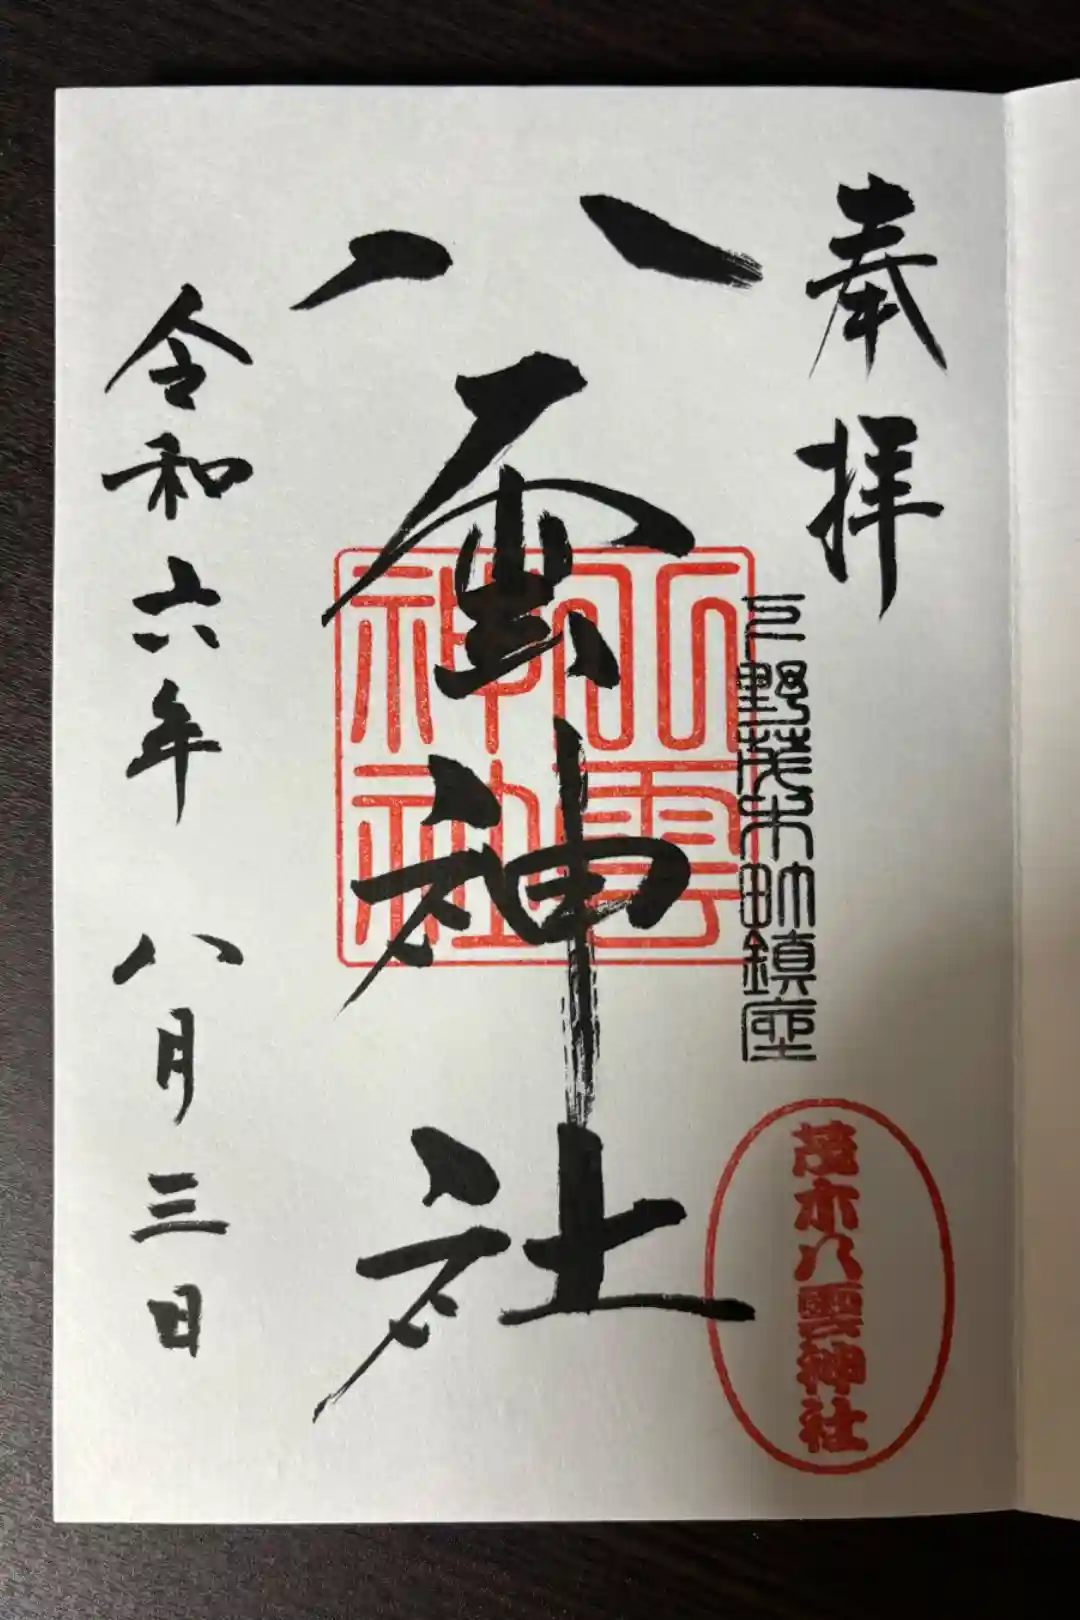 奉拝
下野茂木町鎮座
茂木八雲神社
八雲神社
八雲
神社
令和六年八月三日